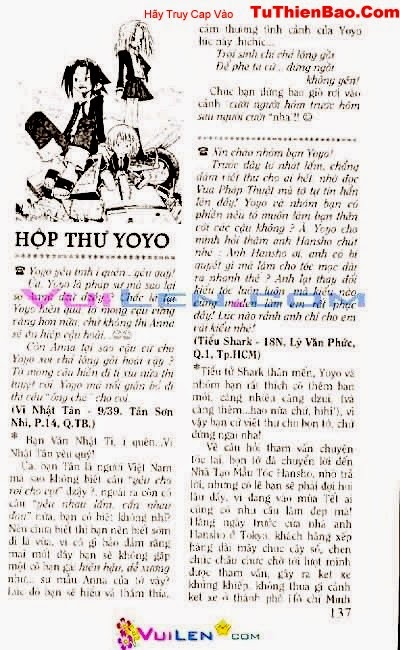 Hãy Truy Cap Vào TuThienBao.Com
HỘP THƯ YOYO
☎ Yoyo yêu tinh í quên.. yêu quý!
Ca, Yoyo là pháp sư mà sao lại
Yoyo hiền quá. Tớ mong cậu cứng
rắng hơn nữa, chứ không thì Anna
sẽ ăn hiếp cậu hoài..
Còn Anna thì sao cậu cứ cho
Yoyo xơi chả lông gối hoài vậy ?
Tớ mong cậu hiền đi tí xíu nữa thì
tuyệt vời. Yoyo mà nổi giận bỏ đi
thì cậu "ống chề" cho coi.
(Vi Nhật Tân - 9/39. Tân Sơn
Nhì, P.14, Q.TB.)
* Bạn Văn Nhật Ti, í quên...Vi
Nhật Tân yêu quý!
Ca, bạn Tân là người Việt Nam
mà sao không biết câu "yêu cho
roi cho vọt" dzậy ?, ngoài ra còn có
câu "yêu nhau lắm, cắn nhau
đau" nữa, bạn có biết không nhỉ?
Nếu chưa biết thì bạn nên biết sớm
đi là vừa, vì có gì bảo đảm rằng
mai mốt đây bạn sẽ không gặp
một cô bạn gái hiền hậu, dễ thương
như... sư mẫu Anna của tớ vậy?
Lúc đó bạn sẽ hiểu và thầm thía.
cảm thương tình cảnh của Yoyo
lúc này hichic...
Trời sinh chi chả lông gối
Để phe ta cứ .. đứng ngồi
không yên!
Chúc bạn đừng bao giờ rơi vào
cảnh "cười người hôm trước hôm
sau người cười" nha!! ☺
☎ Xin chào nhóm bạn Yoyo!
Trước đây tớ nhát lắm, chẳng
dám viết thư cho ai hết, nhờ đọc
Vua Pháp Thuật mà tớ tự tin hẳn
lên đấy! Yoyo và nhóm bạn có
phiền nếu tớ muốn làm bạn thân
với các cậu không ? À Yoyo cho
mình hỏi thăm anh Hansho chút
nhé : Anh Hansho ơi, anh có bí
quyết gì mà làm cho tóc mọc dài
ra nhanh thế ? Anh lại thay đổi
kiểu tóc luôn luôn mà kiểu nào
cũng modern làm em rất phục
đấy! Lúc nào rảnh anh chỉ cho em
vài kiểu nhé!
(Tiểu Shark - 18N, Lý Văn Phức,
Q.1, Tp.HCM)
*Tiểu tử Shark thân mến, Yoyo và
nhóm bạn rất thích có thêm bạn
mới, càng nhiều càng dzui, (và
càng thêm...hao nữa chứ, hihi!), vì
vậy bạn cứ viết thư cho bọn tớ, chớ
đừng ngại nha!
Về câu hỏi tham vấn chuyện
tóc tai, bọn tớ đã chuyển lời đến
Nhà Tạo Mẫu Tóc Hansho, nhờ trả
lời, nhưng có lẽ bạn sẽ phải đợi hơi
lâu đấy, vì đang vào mùa Tết ai
cũng có nhu cầu làm đẹp mà!
Hằng ngày trước cửa nhà anh
Hansho ở Tokyo, khách hàng xếp
hàng dài mấy chục cây số, chen
chúc chầu chực chờ tới lượt mình
được tham vấn, gây ra kẹt xe
khủng khiếp, không thua gì cảnh
kẹt xe ở thành phố Hồ chí Minh
137
VUILEN.COM
VUILEN.COM